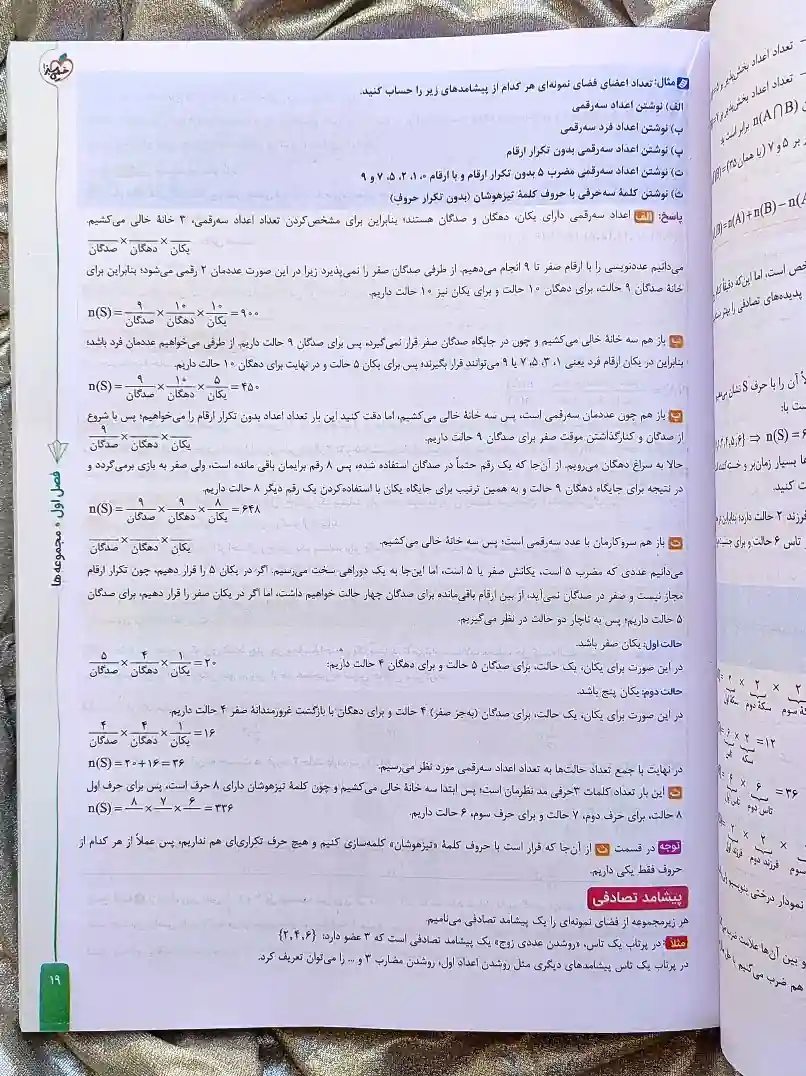 مثال: تعداد اعضای فضای نمونه‌ای هر کدام از پیشامدهای زیر را حساب کنید.
الف) نوشتن اعداد سه‌رقمی
ب) نوشتن اعداد فرد سه‌رقمی
پ) نوشتن اعداد سه‌رقمی بدون تکرار ارقام
ت) نوشتن اعداد سه‌رقمی مضرب ۵ بدون تکرار ارقام و با ارقام ۰، ۱، ۲، ۵، ۷ و ۹
ث) نوشتن کلمهٔ سه‌حرفی با حروف کلمهٔ تیزهوشان (بدون تکرار حروف)
پاسخ: الف اعداد سه‌رقمی دارای یکان، دهگان و صدگان هستند؛ بنابراین برای مشخص‌کردن تعداد اعداد سه‌رقمی، ۳ خانهٔ خالی می‌کشیم.
صدگان × دهگان × یکان
می‌دانیم عددنویسی را با ارقام صفر تا ۹ انجام می‌دهیم. از طرفی صدگان صفر را نمی‌پذیرد زیرا در این صورت عددمان ۲ رقمی می‌شود؛ بنابراین برای
خانهٔ صدگان ۹ حالت، برای دهگان ۱۰ حالت و برای یکان نیز ۱۰ حالت داریم.
n(S) = ۹ صدگان × ۱۰ دهگان × ۱۰ یکان = ۹۰۰
ب باز هم سه خانهٔ خالی می‌کشیم و چون در جایگاه صدگان صفر قرار نمی‌گیرد، پس برای صدگان ۹ حالت داریم. از طرفی می‌خواهیم عددمان فرد باشد؛
بنابراین در یکان ارقام فرد یعنی ۱، ۳، ۵، ۷ یا ۹ می‌توانند قرار بگیرند؛ پس برای یکان ۵ حالت و در نهایت برای دهگان ۱۰ حالت داریم.
n(S) = ۹ صدگان × ۱۰ دهگان × ۵ یکان = ۴۵۰
پ باز هم چون عددمان سه‌رقمی است، پس سه خانهٔ خالی می‌کشیم، اما دقت کنید این بار تعداد اعداد بدون تکرار ارقام را می‌خواهیم؛ پس با شروع
از صدگان و کنارگذاشتن موقت صفر برای صدگان ۹ حالت داریم.
۹ صدگان × دهگان × یکان
حالا به سراغ دهگان می‌رویم. از آن‌جا که یک رقم حتماً در صدگان استفاده شده، پس ۸ رقم برایمان باقی مانده است، ولی صفر به بازی برمی‌گردد و
در نتیجه برای جایگاه دهگان ۹ حالت و به همین ترتیب برای جایگاه یکان با استفاده‌کردن یک رقم دیگر ۸ حالت داریم.
n(S) = ۹ صدگان × ۹ دهگان × ۸ یکان = ۶۴۸
ت باز هم سروکارمان با عدد سه‌رقمی است؛ پس سه خانهٔ خالی می‌کشیم.
صدگان × دهگان × یکان
می‌دانیم عددی که مضرب ۵ است، یکانش صفر یا ۵ است، اما این‌جا به یک دوراهی سخت می‌رسیم. اگر در یکان ۵ را قرار دهیم، چون تکرار ارقام
مجاز نیست و صفر در صدگان نمی‌آید، از بین ارقام باقی‌مانده برای صدگان چهار حالت خواهیم داشت، اما اگر در یکان صفر را قرار دهیم، برای صدگان
۵ حالت داریم؛ پس به ناچار دو حالت در نظر می‌گیریم.
حالت اول: یکان صفر باشد.
در این صورت برای یکان، یک حالت، برای صدگان ۵ حالت و برای دهگان ۴ حالت داریم:
۵ صدگان × ۴ دهگان × ۱ یکان = ۲۰
حالت دوم: یکان پنج باشد.
در این صورت برای یکان، یک حالت، برای صدگان (به‌جز صفر) ۴ حالت و برای دهگان با بازگشت غرورمندانهٔ صفر ۴ حالت داریم.
۴ صدگان × ۴ دهگان × ۱ یکان = ۱۶
در نهایت با جمع تعداد حالت‌ها به تعداد اعداد سه‌رقمی مورد نظر می‌رسیم.
n(S) = ۲۰ + ۱۶ = ۳۶
ث این بار تعداد کلمات ۳حرفی مد نظرمان است؛ پس ابتدا سه خانهٔ خالی می‌کشیم و چون کلمهٔ تیزهوشان دارای ۸ حرف است، پس برای حرف اول
۸ حالت، برای حرف دوم، ۷ حالت و برای حرف سوم، ۶ حالت داریم.
n(S) = ۸ × ۷ × ۶ = ۳۳۶
توجه در قسمت ث از آن‌جا که قرار است با حروف کلمهٔ «تیزهوشان» کلمه‌سازی کنیم و هیچ حرف تکراری‌ای هم نداریم، پس عملاً از هر کدام از
حروف فقط یکی داریم.
پیشامد تصادفی
هر زیرمجموعه از فضای نمونه‌ای را یک پیشامد تصادفی می‌نامیم.
مثلاً: در پرتاب یک تاس، «روشدن عددی زوج» یک پیشامد تصادفی است که ۳ عضو دارد: {۲,۴,۶}
در پرتاب یک تاس پیشامدهای دیگری مثل روشدن اعداد اول، روشدن مضارب ۳ و ... را می‌توان تعریف کرد.
فصل اول • مجموعه‌ها
۱۹